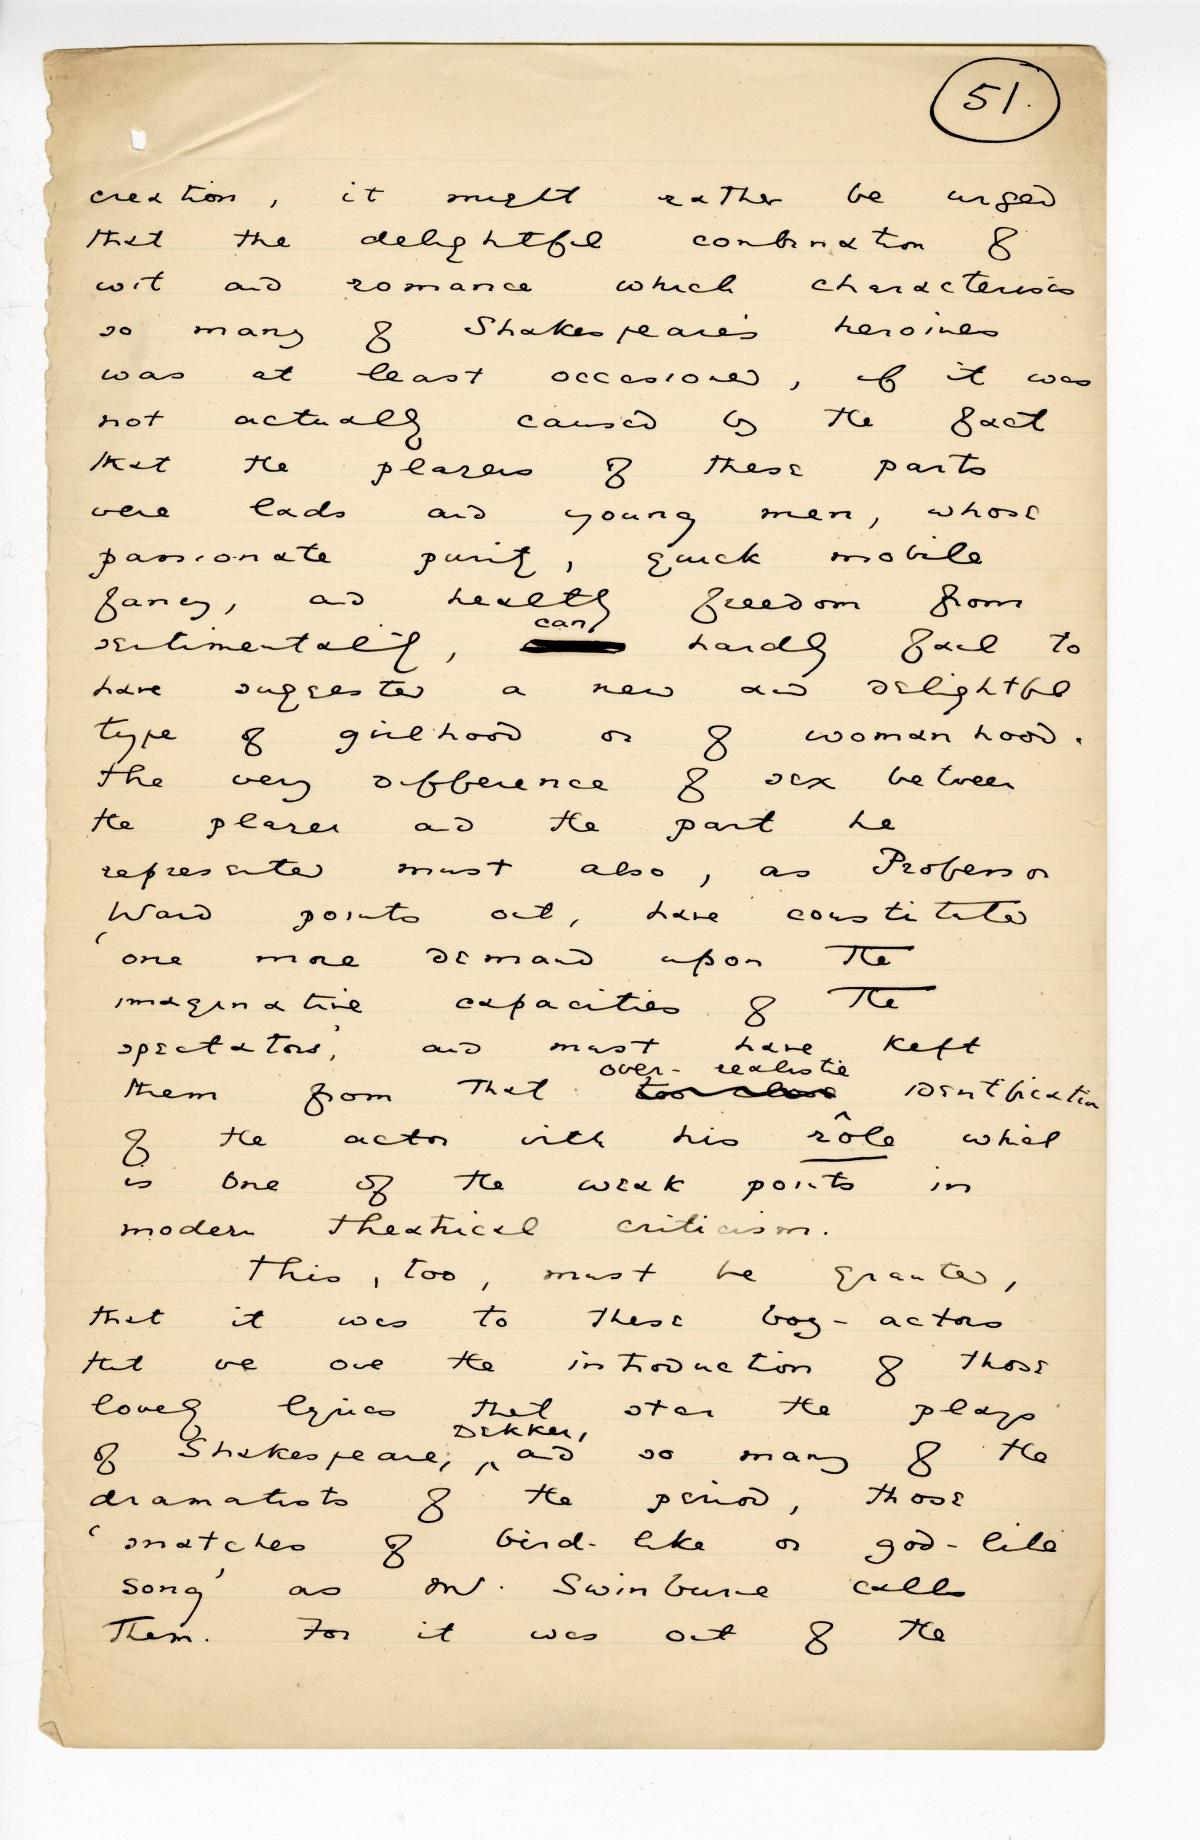 51.
creation, it might rather be urged
that the delightful combination of
wit and romance which characterises
so many of Shakespeare's heroines
was at least occasioned, if it was
not actually caused by the fact
that the players of these parts
were lads and young men, whose
passionate purity, quick mobile
fancy, and healthy freedom from
can
sentimentality, hardly fail to
have suggested a new and delightful
type of girlhood or of womanhood.
The very difference of sex between
the player and the part he
represented must also, as Professor
Ward points out, have constituted
'one more demand upon the
imaginative capacities of the
spectators,' and must have kept
over-realistic
them from that too close identification
of the actor with his rôle which
is one of the weak points in
modern theatrical criticism.
This, too, must be granted,
that it was to these boy-actors
that we owe the introduction of those
lovely lyrics that star the plays
Dekker,
of Shakespeare, and so many of the
dramatists of the period, those
'snatches of bird-like or god-like
song' as Mr. Swinburne calls
them. For it was out of the